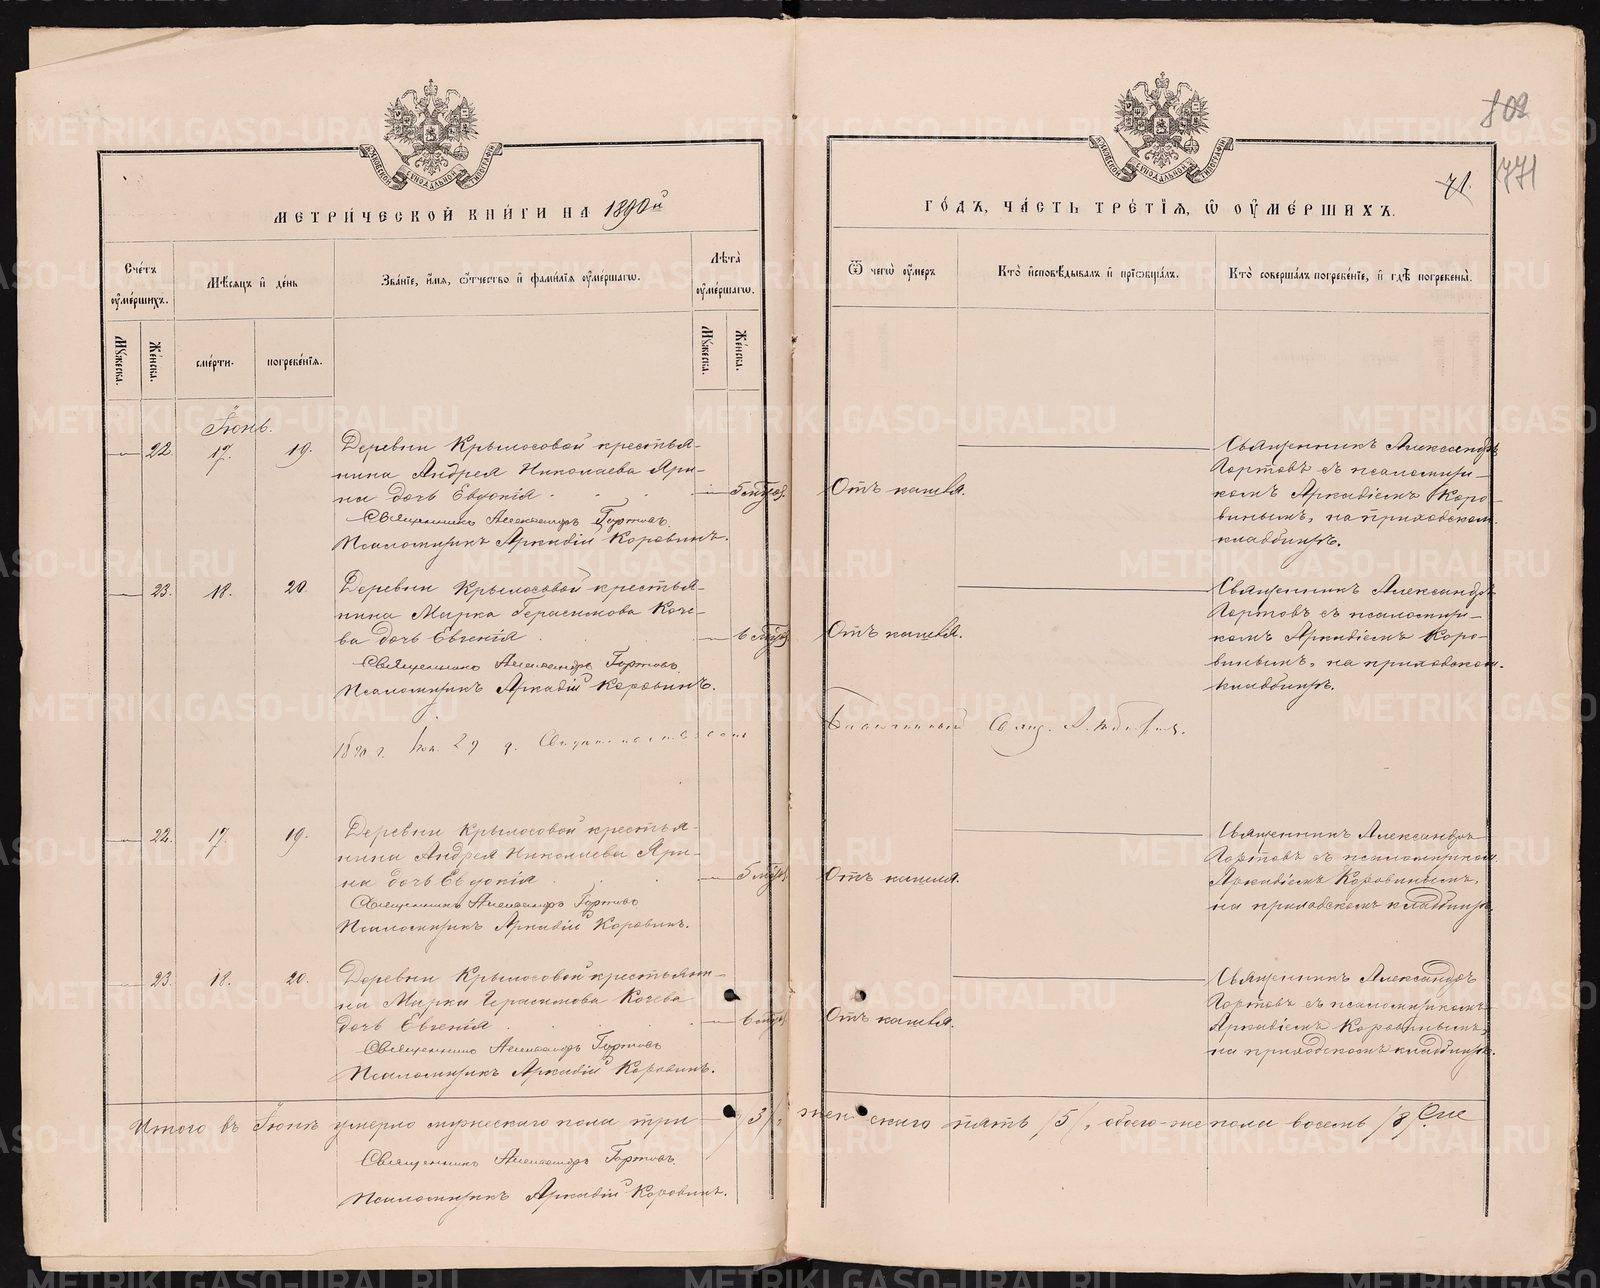 802
771
71.
МЕТРИ́ЧЕСКОЙ КНИ́ГИ НА 1890й
ГО́ДЪ, ЧА́СТЬ ТРЕ́ТІЯ, Ѿ ОУМЕ́РШИХЪ.
Сче́тъ оуме́ршихъ.
Мѣ́сяцъ и҆ де́нь
Зва́ніе, и҆́мя, о҆́тчество и҆ фами́лія оуме́ршагѡ.
Лѣ́та оуме́ршагѡ.
Ѿ чегѡ̀ оу́меръ
Кто̀ и҆сповѣ́дывалъ и҆ прїѡбща́лъ.
Кто̀ соверша́лъ погребе́ніе, и҆ гдѣ̀ погребены̀.
Му́жеска.
Же́нска.
сме́рти.
погребе́нія.
Му́жеска.
Же́нска.
Іюнь.
22. 17. 19. Деревни Крылосовой крестья-
нина Андрея Николаева Яри-
на дочь Евдокія
Священникъ Александръ Гортовъ.
Псаломщикъ Аркадій Коровинъ.
Отъ кашля.
Священникъ Александръ
Гортовъ съ псаломщи-
комъ Аркадіемъ Коро-
винымъ, на приходском
кладбищѣ.
23. 18. 20. Деревни Крылосовой крестья-
нина Марка Герасимова Коче-
ва дочь Евгенія
Священникъ Александръ Гортовъ
Псаломщикъ Аркадій Коровинъ.
Отъ кашля.
Священникъ Александръ
Гортовъ съ псаломщи-
комъ Аркадіемъ Коро-
винымъ, на приходском.
кладбищѣ.
1890 г. 29 д.
Благочинный Свящ.
22. 17. 19. Деревни Крылосовой крестья-
нина Андрея Николаева Яри-
на дочь Евдокія
Священникъ Александръ Гортовъ
Псаломщикъ Аркадій Коровинъ.
Отъ кашля.
Священникъ Александръ
Гортовъ съ псаломщиком
Аркадіемъ Коровинымъ,
на приходскомъ кладбищѣ
23. 18. 20. Деревни Крылосовой крестьяни-
на Марка Герасимова Кочева
дочь Евгенія
Священникъ Александръ Гортовъ
Псаломщикъ Аркадій Коровинъ.
Отъ кашля.
Священникъ Александръ
Гортовъ съ псаломщикомъ
Аркадіемъ Коровинымъ,
на приходскомъ кладбищѣ.
Итого въ Іюнѣ умерло мужескаго пола три /3/, женскаго пять /5/, обоего-же пола восемь /8/.
Священникъ Александръ Гортовъ.
Псаломщикъ Аркадій Коровинъ.
METRIKI.GASO-URAL.RU